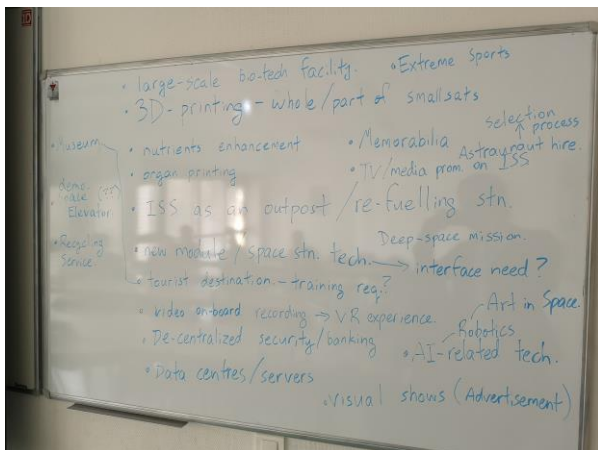 • large-scale bo-tech facility.
• Extreme sports
• 3D-printing - whole/part of smallsats
selection process
• Museum
• nutrients enhancement
• Memorabilia
Astraynaut hire.
• organ printing
• TV/media prom. on ISS
Elevator
• ISS as an outpost / re-fuelling stn.
Deep-space mission.
• Recycling
Service
• new module / space stn. tech. → interface need?
• tourist destination - training req.?
Art in Space.
• Video on-board recording → VR experience.
Robotics
• De-centralized security/banking
• AI-related tech.
• Data centres/servers
• Visual shows (Advertisement)